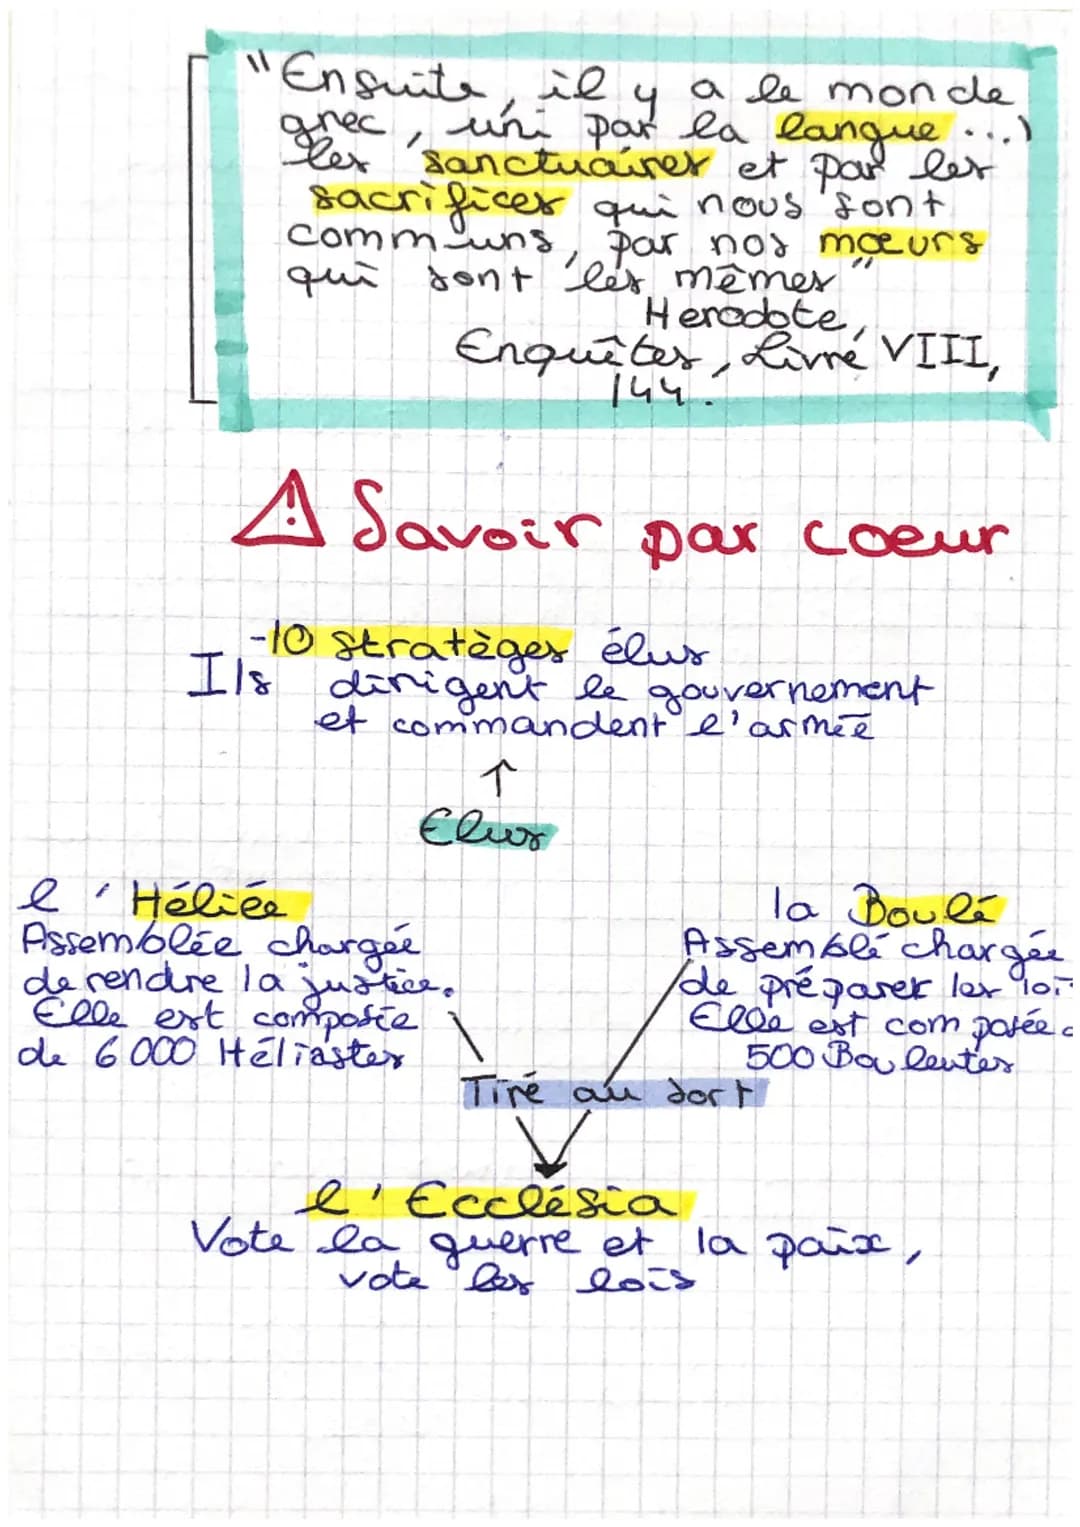 "Ensuite, il y a le monde
grec, uni par la langue ...)
les sanctuaires et par les
sacrifices qui nous sont
communs, par nos mœurs
qui sont les mêmes"
Herodote,
Enquêtes, Livré VIII,
144.
⚠ Savoir par coeur
-10 stratèges élus
Ils dirigent le gouvernement
et commandent l'armée
↑
Elus
l'Héliée
Assemblée chargée
de rendre la justice.
Elle est composée
de 6000 Héliastes
la Boulé
Assemblé chargée
de préparer les loi
Elle est composée d
500 Bouleutes
Tiré au sort
l'Ecclésia
Vote la guerre et la paix,
vote les lois